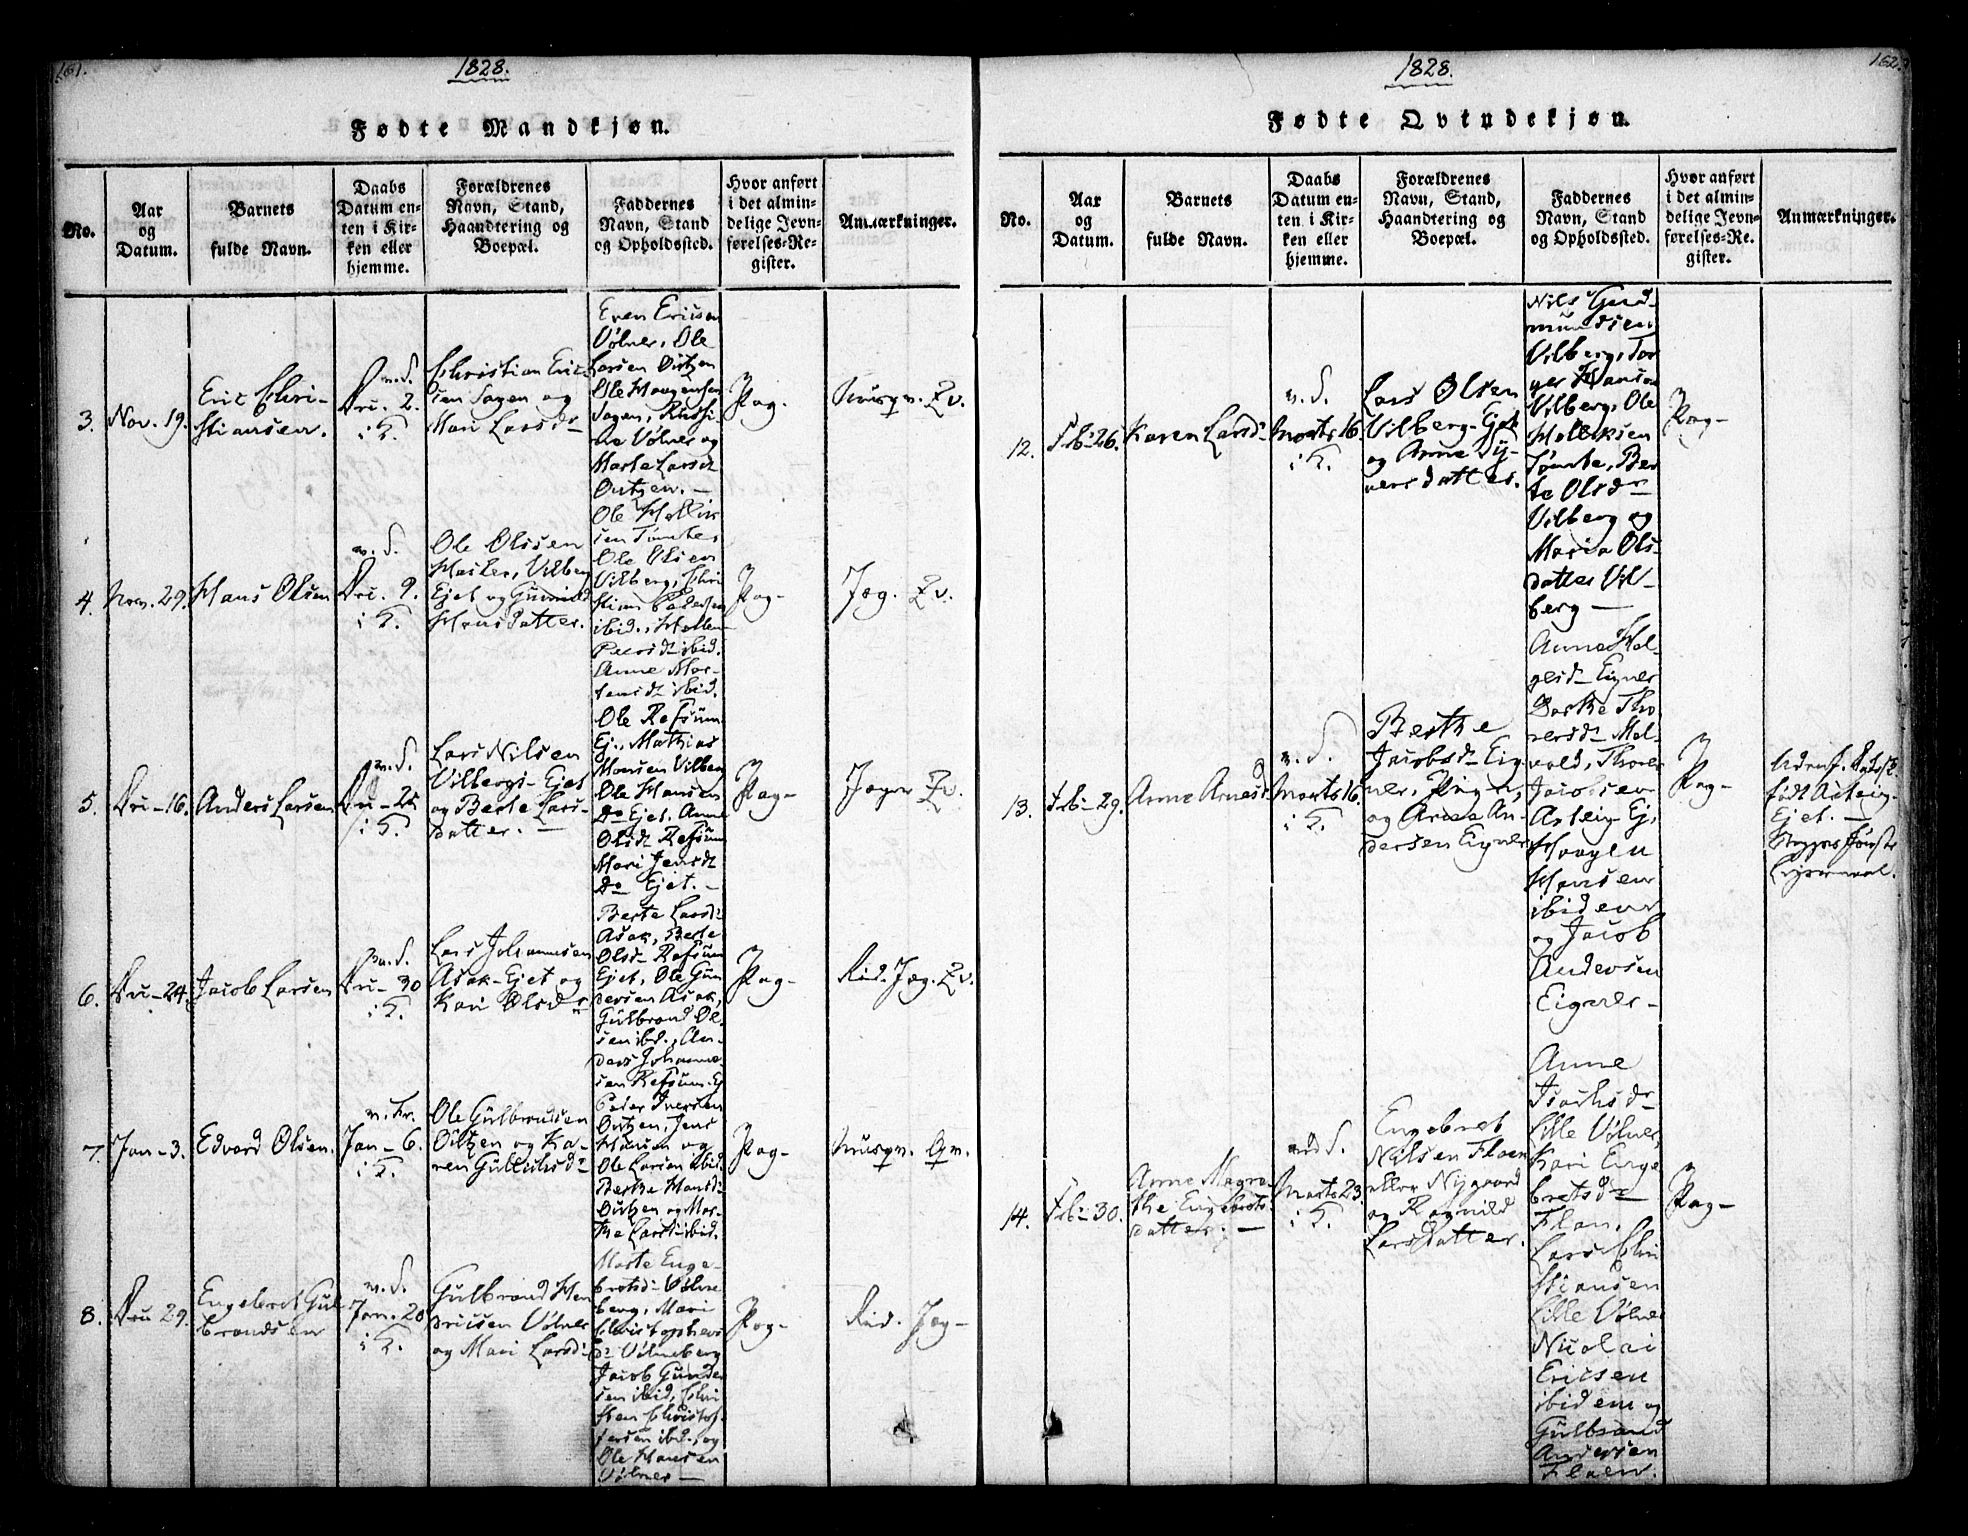 161.
1828.
Fødte Mandkjøn.
No.
Aar
og
Datum.
Barnets
fulde Navn.
Daabs
Datum en-
ten i Kir-
ken eller
hjemme.
Forældrenes
Navn, Stand,
Haandtering og
Boepæl.
Faddernes
Navn, Stand
og Opholdssted.
Hvor anført
i det almin-
delige Jevn-
førelses-Re-
gister.
Anmærkninger.
3.
Nov. 19.
Eric Chri-
stiansen.
2.
i K.
Christian Eric-
sen Sagen og
Mari Larsdr
Even Ericsen
Vølner, Ole
Larsen Ourtzen
Ole Haagensen
Sagen,
Vølner og
Marte Larsd
Ourtzen. —
Pag.
4.
Nov. 29.
Hans Olsen
9.
i K.
Ole Olssen
Vilberg
Ejet og Gunild
Hansdatter.
Ole Hellik
sen Tomter
Ole Olsen
Vilberg, Chri
stian Pedersen
ibid., Hellen
Peersd ibid.
Anne Mor-
tensdr ibid.
Pag-
Jog.
5.
16.
Anders Larsen
i K.
Lars Nilsen
Vilbergs-Ejet
og Berte Lars-
datter. —
Ole Refsum
Ej., Mathias
Monsen Vilberg
Ole Hansen
Do Ejet, Anne
Olsdr Refsum
Mari Jensdr
Do Ejet. —
Pag-
6.
24.
Jacob Larsen
30
i K.
Lars Johannesen
Asak-Ejet og
Kari Olsdr
Berte Larsd:
Asak, Berte
Olsd Refsum
Ejet, Ole Gun
dersen Asak,
Gulbrand Ol-
sen ibd., An-
ders Johanne
sen Refsum-Ej
Pag-
7.
Jan-3.
Edvard Olsen.
Jan-6.
i K.
Ole Gulbrandsen
Ourtzen og Ka-
ren Gulliksdr
Peder Iversen
Ourtzen, Jens
Hansen og
Ole Larsen ibid.
Berthe Hansd:
Ourtzen og Mar-
the Larsd: ibid.
Pag-
8.
29.
Engebret Gul
brandsen
Jan. 20
i K.
Gulbrand Hen
dricsen Vølner
og Mari Larsd:
Marte Enge-
bretsd: Vølne
berg, Mari
Christophers
d: Vølneberg
Jacob Gunder
sen ibid, Chri
sten Christof-
fersen ibid., og
Ole Hansen
Vølner —
Pag-
Jog-
162.
1828.
Fødte Qvindekjøn.
No.
Aar
og
Datum.
Barnets
fulde Navn.
Daabs
Datum en-
ten i Kir-
ken eller
hjemme.
Forældrenes
Navn, Stand,
Haandtering og
Boepæl.
Faddernes
Navn, Stand
og Opholdssted.
Hvor anført
i det almin-
delige Jevn-
førelses-Re-
gister.
Anmærkninger.
12.
Feb: 26.
Karen Larsd:
Marts 16.
i K.
Lars Olsen
Vilberg-Ejet
og Anne Sy-
versdatter.
Nils Gud-
mundsen
Vilberg, Tor
ger Hansen
Vilberg, Ole
Helliksen
Tomte, Ber
te Olsdr
Vilberg og
Maria Ols-
datter Vil-
berg —
Pag-
13.
Feb: 29.
Anne Arnesd
Marts 16.
i K.
Berthe
Jacobsd: Eig-
ner, Pige,
og Arne An-
dersen Eigner
Anne Hel-
gesd: Eigner
Dorthe Tho
resd: Mel-
vold, Thorer
Jacobsen
Asleig-Ej.
Haagen
Hansen
ibidem
og Jacob
Andersen
Eigner —
Pag-
født Asleig-
Ejet. —
14.
Feb: 30.
Anne Magre-
the Engebrets-
datter. —
Marts 23.
i K.
Engebret
Nilsen Floen
eller Nygaard
og Ragnild
Larsdatter.
Anne
Isachsdr
Lille Vølner,
Kari Enge
bretsdr
Floen,
Lars Chri
stiansen
Lille Vølner
Nicolai
Ericsen
ibidem og
Gulbrand
Andersen
Floen.
Pag-